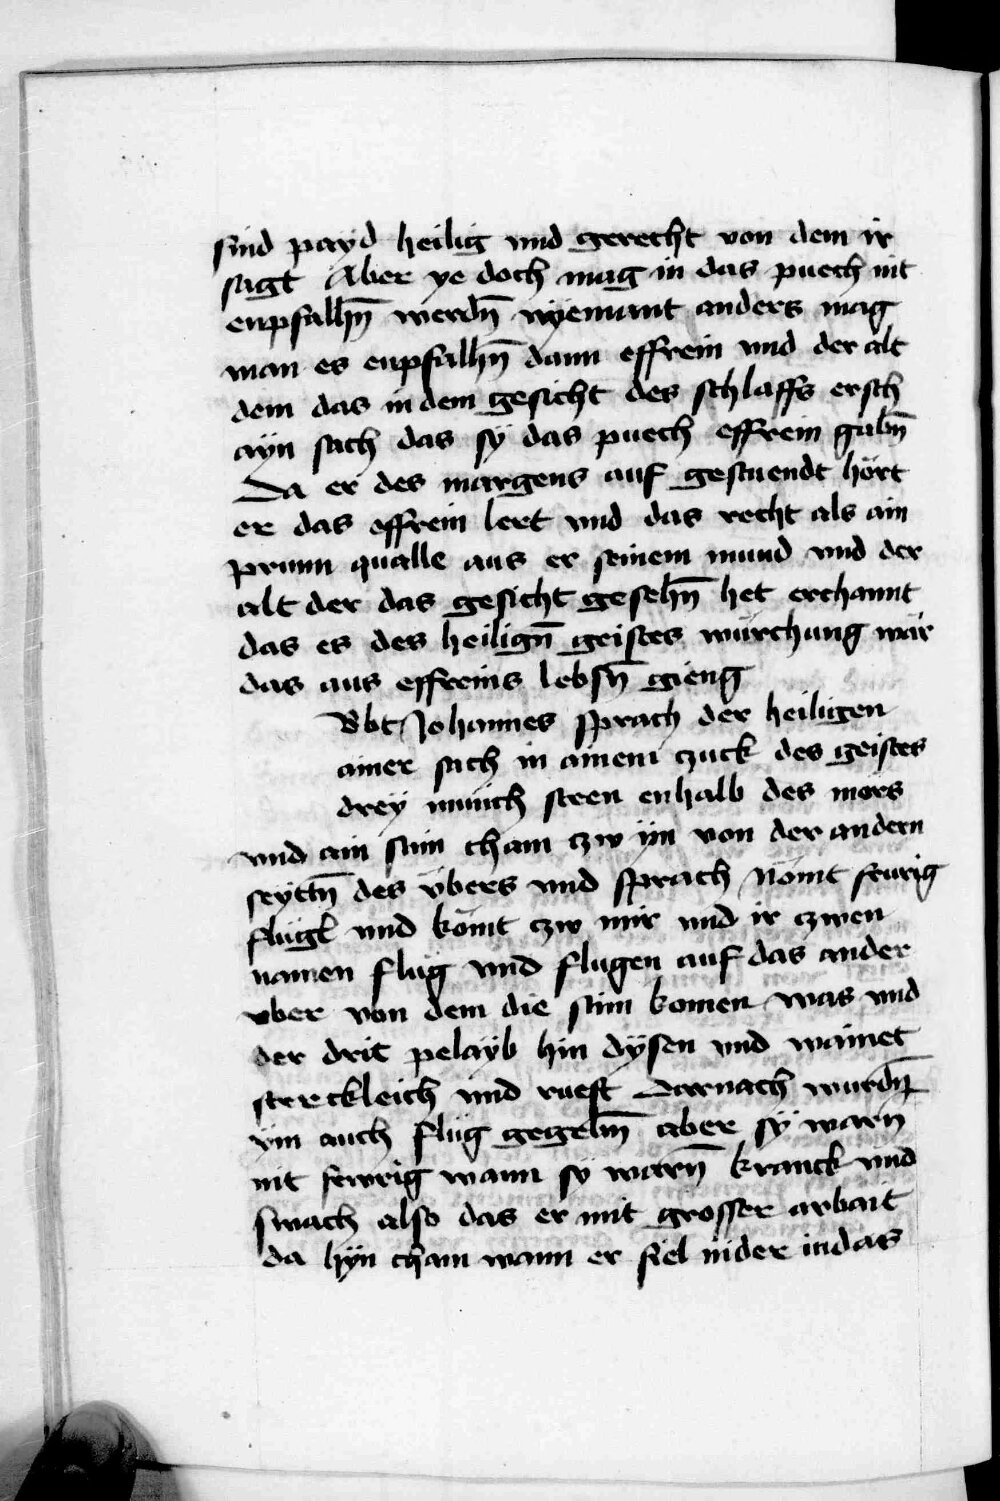 sind payd heilig vnd gerecht von dem ir
sagt Aber ye doch mag in das puech nit
enpfalhn̄ werdn̄ nyemant anders mag
man es enpfalhn̄ dann effrein vnd der alt
dem das in dem gesicht des schlaffs ersch
ayn sach das sy das puech effrein gabn̄
Da er des margens auf gestuendt hört
er das effrein lert vnd das recht als ain
prunn qualle aus er seinem mund vnd der
alt der das gesicht gesehn̄ het erchannt
das es des heilign̄ geistes würchung wär
das aus effreins lebsn̄ gieng
Abt Johannes sprach der heiligen
ainer sach in ainem czuck des geistes
drey münich steen enhalb des mörs
vnd ain stim cham czw im von der andern
seyttn̄ des vbers vnd sprach Nömt feurig
flügl vnd kömt czw mir vnd ir czwen
namen flüg vnd flugen auf das ander
vber von dem die stim komen was vnd
der drit pelayb hin dysen vnd wainet
sterckleich vnd rueft Darnach wurdn̄
ym auch flüg gegebn̄ aber sy warn̄
nit fewrig wann sy warn̄ kranck vnd
swach also das er mit grosser arbait
da hyn cham wann er fiel nider in das